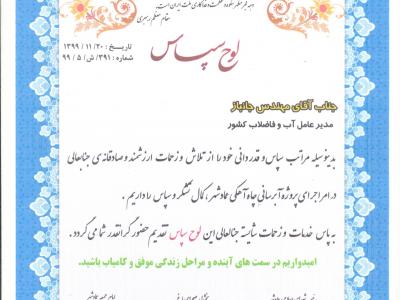 مقام معظم رهبری
لوح سپاس
تاریخ : ۱۳۹۹/۱۱/۲۰
شماره : ۳۹۱/ش/۵/۹۹
جناب آقای مهندس جانباز
مدیر عامل آب و فاضلاب کشور
بدینوسیله مراتب سپاس و قدردانی خود را از تلاش و زحمات ارزشمند و صادقانه ی جنابعالی
در امر اجرای پروژه آبرسانی چاه آهکی عمادشهر ، کمال تشکر و سپاس را داریم .
به پاس خدمات و زحمات شایسته جنابعالی این لوح سپاس تقدیم حضور گرانقدر شما می گردد .
امیدواریم در سمت های آینده و مراحل زندگی موفق و کامیاب باشید.